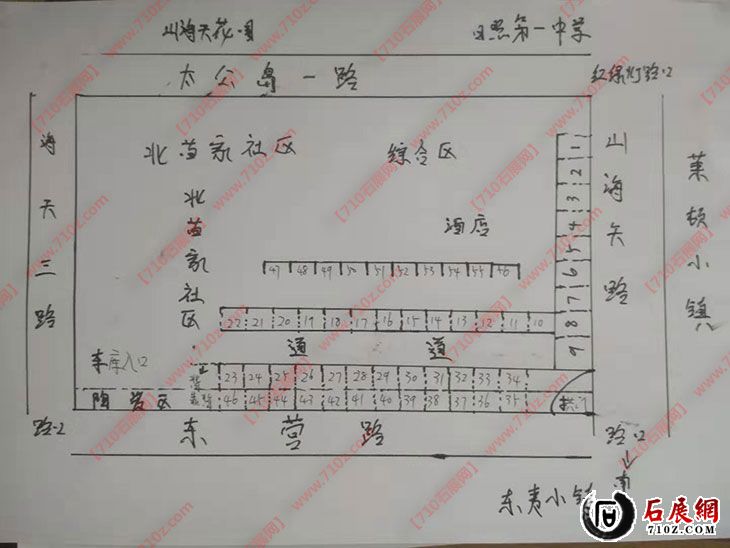 山海天花园
日照第一中学
太公岛一路
红绿灯路口
北苗家社区
综合区
海天三路
山海天路
莱顿小镇
北苗家社区
酒店
1
2
3
4
5
6
7
8
9
47 48 49 50 51 52 53 54 55 56
22 21 20 19 18 17 16 15 14 13 12 11 10
通道
车库入口
23 24 25 26 27 28 29 30 31 32 33 34
陶瓷区
46 45 44 43 42 41 40 39 38 37 36 35
拱门
路口
东营路
路口
南
东夷小镇
【710石展网】 www.710z.com
石展網
710Z.COM